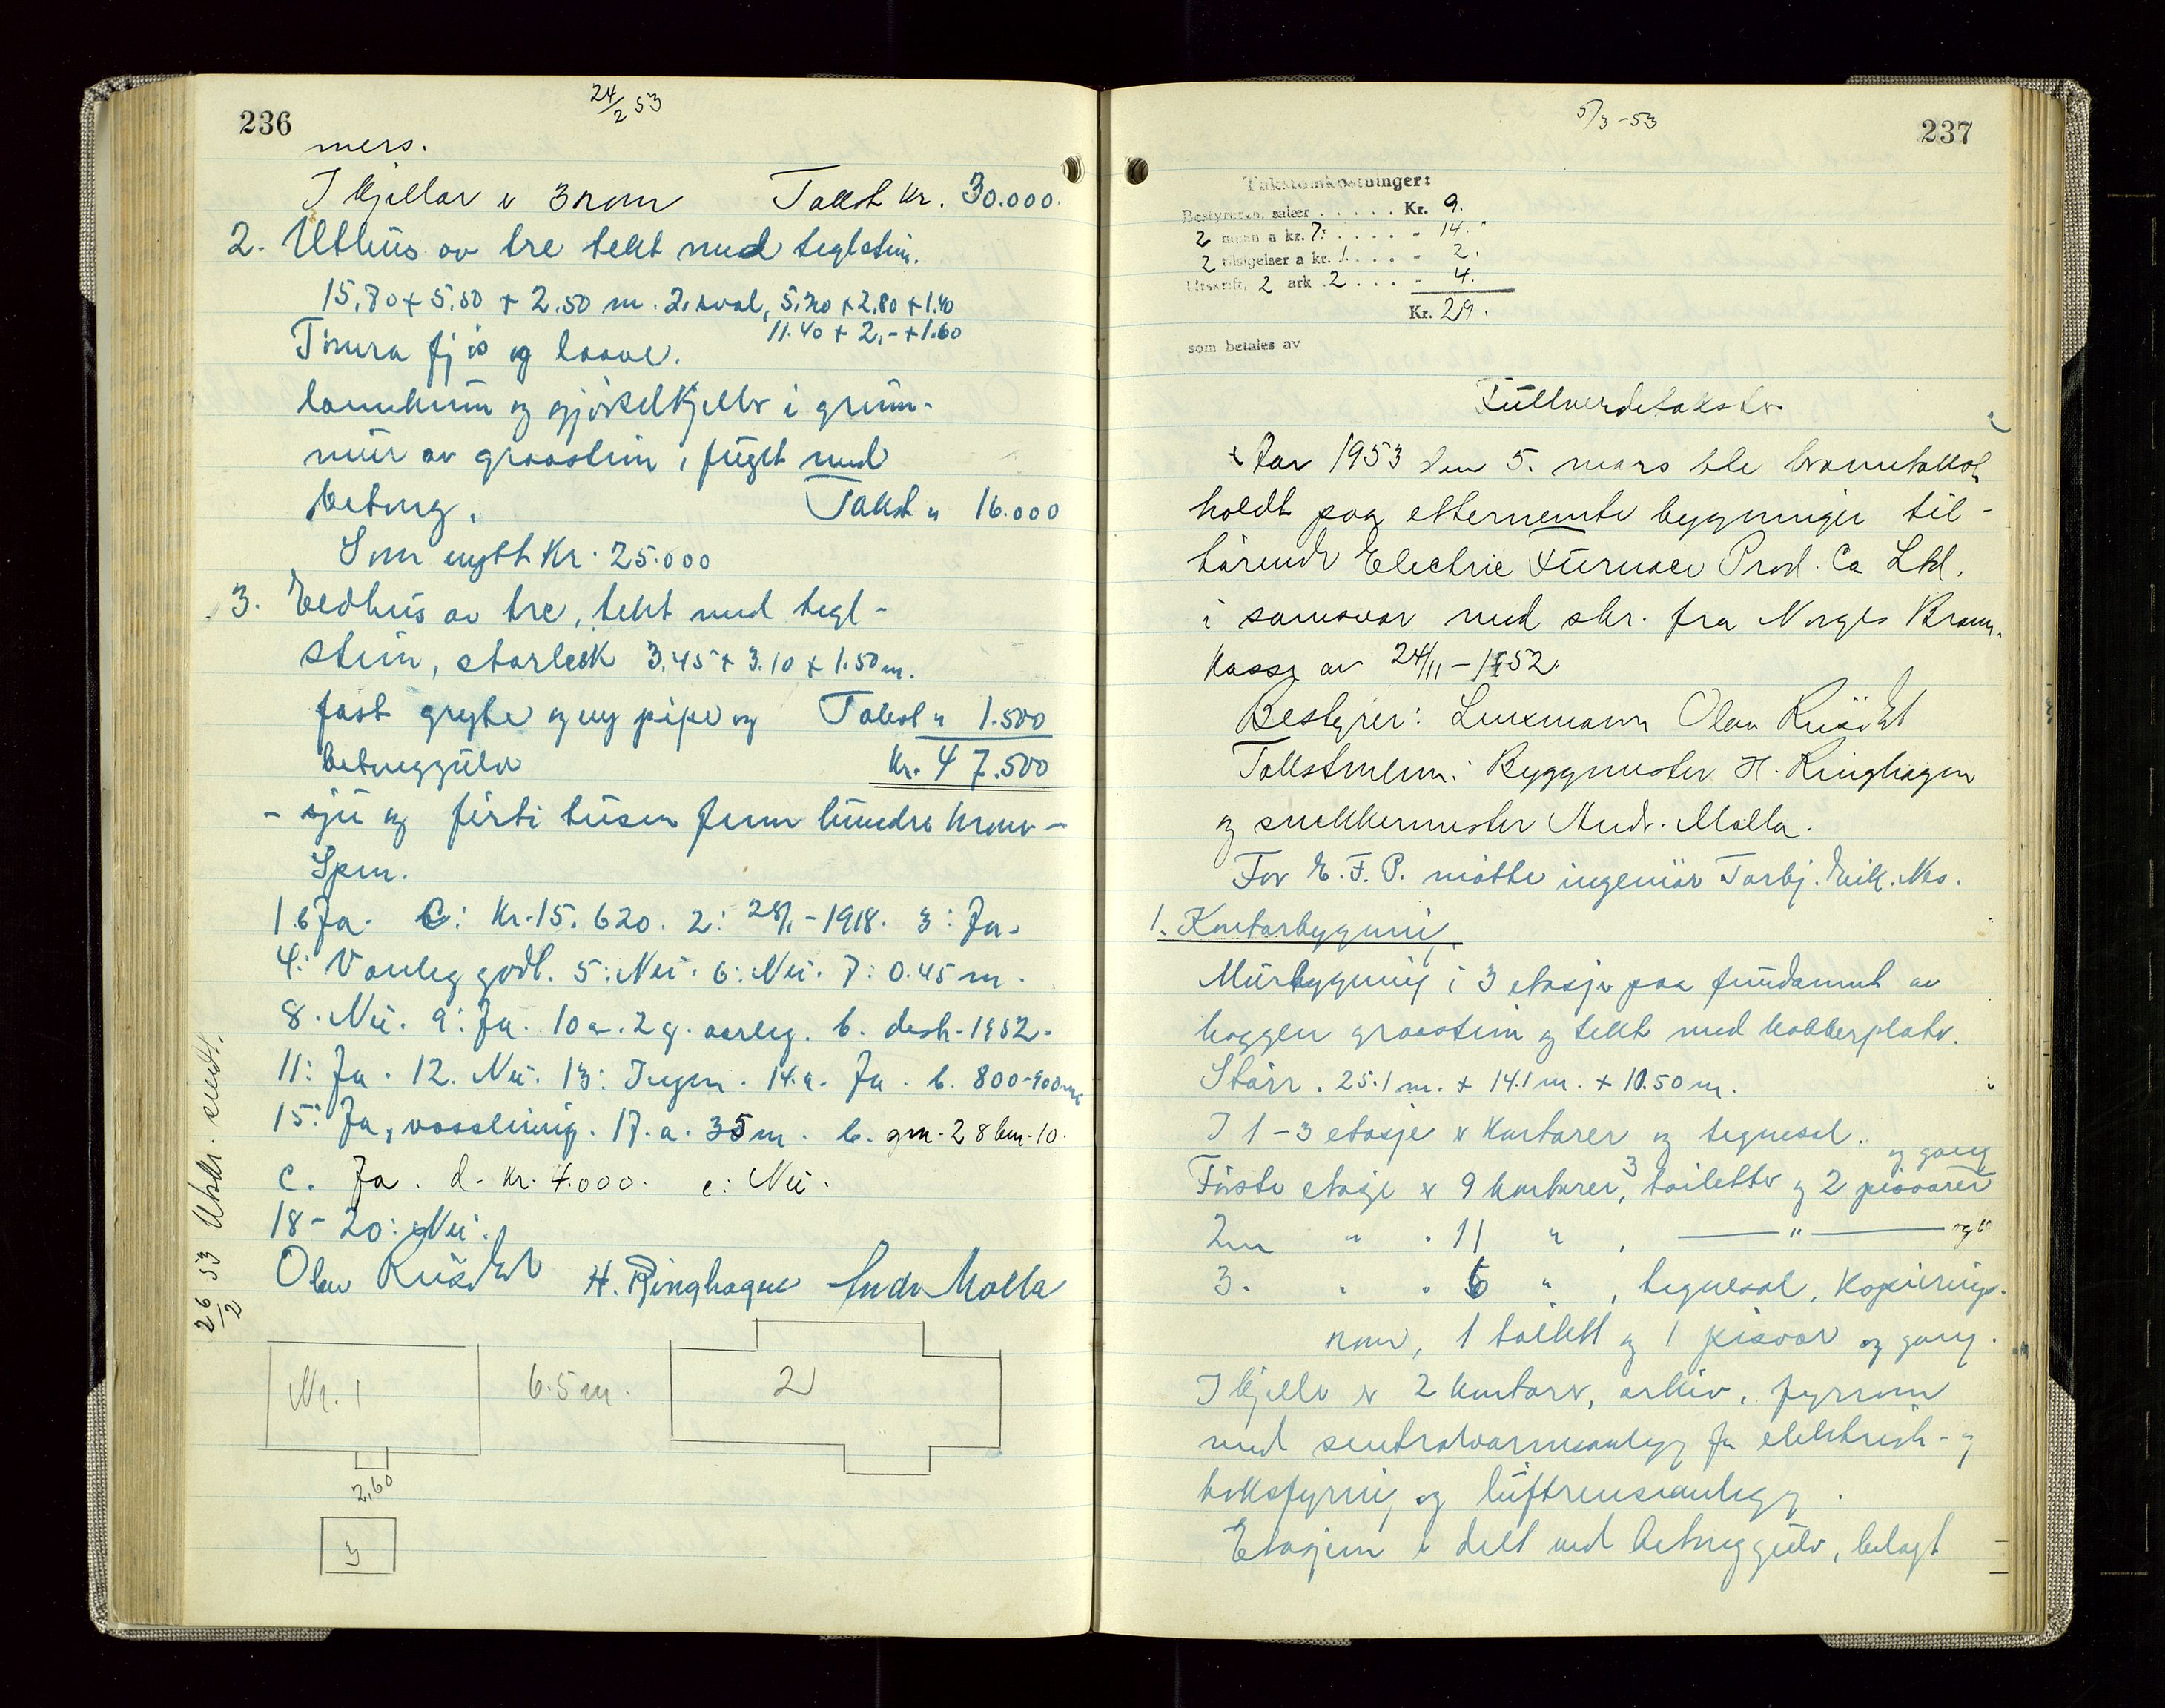 236
24/2 53
mers.
I kjellar er 3 rom Takst kr. 30.000.
2. Uthus av tre tekt med teglstein.
15,80 + 5,50 + 2.50 m. 2. sval, 5,20 + 2,80 + 1.40
11.40 + 2,- + 1.60
fjøs og laave.
og gjødselkjeller i grun-
mur av graastein, fuget med
betong. Takst " 16.000
Som nytt kr. 25.000
3. Eldhus av tre, tekt med tegl-
stein, storleik 3,45 + 3.10 + 1.50 m.
fast gryte og ny pipe og Takst " 1.500
betonggulv kr. 47.500
- sju og førti tusen fem hundre kroner -
Spm.
1 b Ja. C: Kr. 15.620. 2: 28/1 - 1918. 3: Ja.
4: Vanleg godt. 5: Nei. 6: Nei. 7: 0.45 m.
8. Nei. 9: Ja. 10 a. 2 g. aarleg. b. des. - 1952.
11: Ja. 12. Nei. 13: Ingen. 14. a. Ja. b. 800-900 m
15: Ja, vassleining. 17. a. 35 m. b. gm. 28 bm. 10.
c. Ja. d. Kr. 4.000. e: Nei.
18 - 20: Nei.
Olav H. Ringhagen Andr Molla
26/2 53 Utskr. sendt.
Nr. 1 6.5 m. 2
2,60
3
237
5/3 - 53
Takstomkostninger:
Bestyreren, salær . . . . . Kr. 9.
2 mann a kr. 7: . . . . . - 14.
2 tilsigelser a kr. 1. . . . - 2.
Utskrift, 2 ark 2 . . . - 4.
Kr. 29.
som betales av
Fullverditakster
Aar 1953 den 5. mars ble branntakst
holdt paa etternemte bygninger til-
hørende Electric Furnace Prod. Co Ltd.
i samsvar med skr. fra Norges Brann-
kasse av 24/11 - 1952.
Bestyrer: Lensmann Olav
Takstmenn: Byggmester H. Ringhagen
og snekkermester Andr. Molla.
For E. F. P. møtte ingeniør Torbj. Eik. Nes.
1. Kontorbygning
Murbygning i 3 etasjer paa fundament av
hoggen graastein og tekt med kobberplater.
Størr. 25.1 m. + 14.1 m. + 10.50 m.
I 1 - 3 etasje er kontorer og tegnesal.
og gang
Første etasje er 9 kontorer, 3 toiletter og 2 pisoarer
2en " " 11 " , — " —
3. " " 6 " , tegnesal, kopierings-
rom, 1 toilett og 1 pisoar og gang.
I kjeller er 2 kontorer, arkiv, fyrrom
med sentralvarmeanlegg for elektrisk- og
koksfyring og luftrenseanlegg.
Etasjene er delt ved betonggulv, belagt